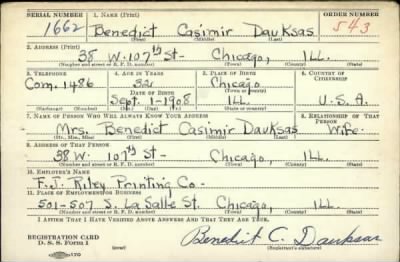 SERIAL NUMBER 1. NAME (Print) ORDER NUMBER
1662 Benedict Casimir Dauksas 543
(First) (Middle) (Last)
2. ADDRESS (Print)
38 W. 107th St- Chicago, ILL.
(Number and street or R. F. D. number) (Town) (County) (State)
3. TELEPHONE 4. AGE IN YEARS 5. PLACE OF BIRTH 6. COUNTRY OF CITIZENSHIP
Com. 1486 32 Chicago
DATE OF BIRTH (Town or county)
Sept. 1-1908 ILL. U.S.A.
(Exchange) (No.) (Mo.) (Day) (Yr.) (State or country)
7. NAME OF PERSON WHO WILL ALWAYS KNOW YOUR ADDRESS 8. RELATIONSHIP OF THAT PERSON
Mrs. Benedict Casimir Dauksas Wife
(Mr., Mrs., Miss) (First) (Middle) (Last)
9. ADDRESS OF THAT PERSON
38 W. 107th St- Chicago, ILL.
(Number and street or R. F. D. number) (Town) (County) (State)
10. EMPLOYER'S NAME
F.J. Riley Printing Co-
11. PLACE OF EMPLOYMENT OR BUSINESS
501-507 S. La Salle St. Chicago, ILL.
(Number and street or R. F. D. number) (Town) (County) (State)
I AFFIRM THAT I HAVE VERIFIED ABOVE ANSWERS AND THAT THEY ARE TRUE.
REGISTRATION CARD
D. S. S. Form 1 Benedict C. Dauksas
(Registrant's signature)